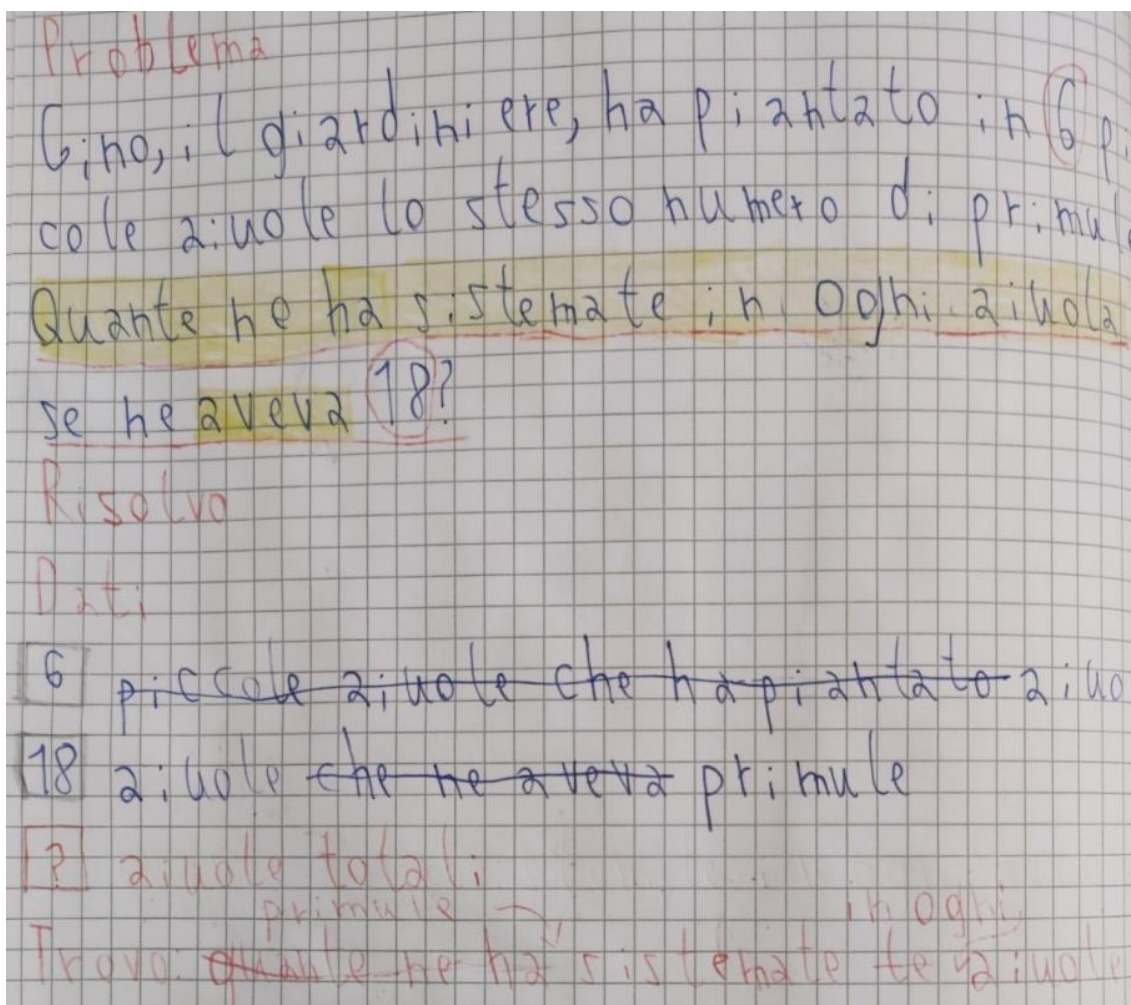 Problema
Gino, il giardiniere, ha piantato in 6 pi
cole aiuole lo stesso numero di primule
Quante ne ha sistemate in ogni aiuola
se ne aveva 18?
Risolvo
Dati
6 piccole aiuole che ha piantato aiuo
18 aiuole che ne aveva primule
? aiuole totali
primule in ogni
Trovo: quante ne ha sistemate aiuole